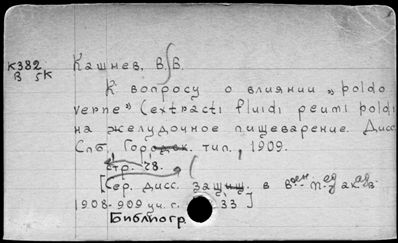 К382
В 5К
Кашнев, В.В.
К вопросу о влиянии "boldo
verne" (extracti fluidi peumi boldi
на желудочное пищеварение. Дисс.
Спб., Городск. тип., 1909.
стр. 28.
[Сер. дисс. защищ. в воен. мед. акад. в
1908-909 уч. г. 33]
Библиогр.